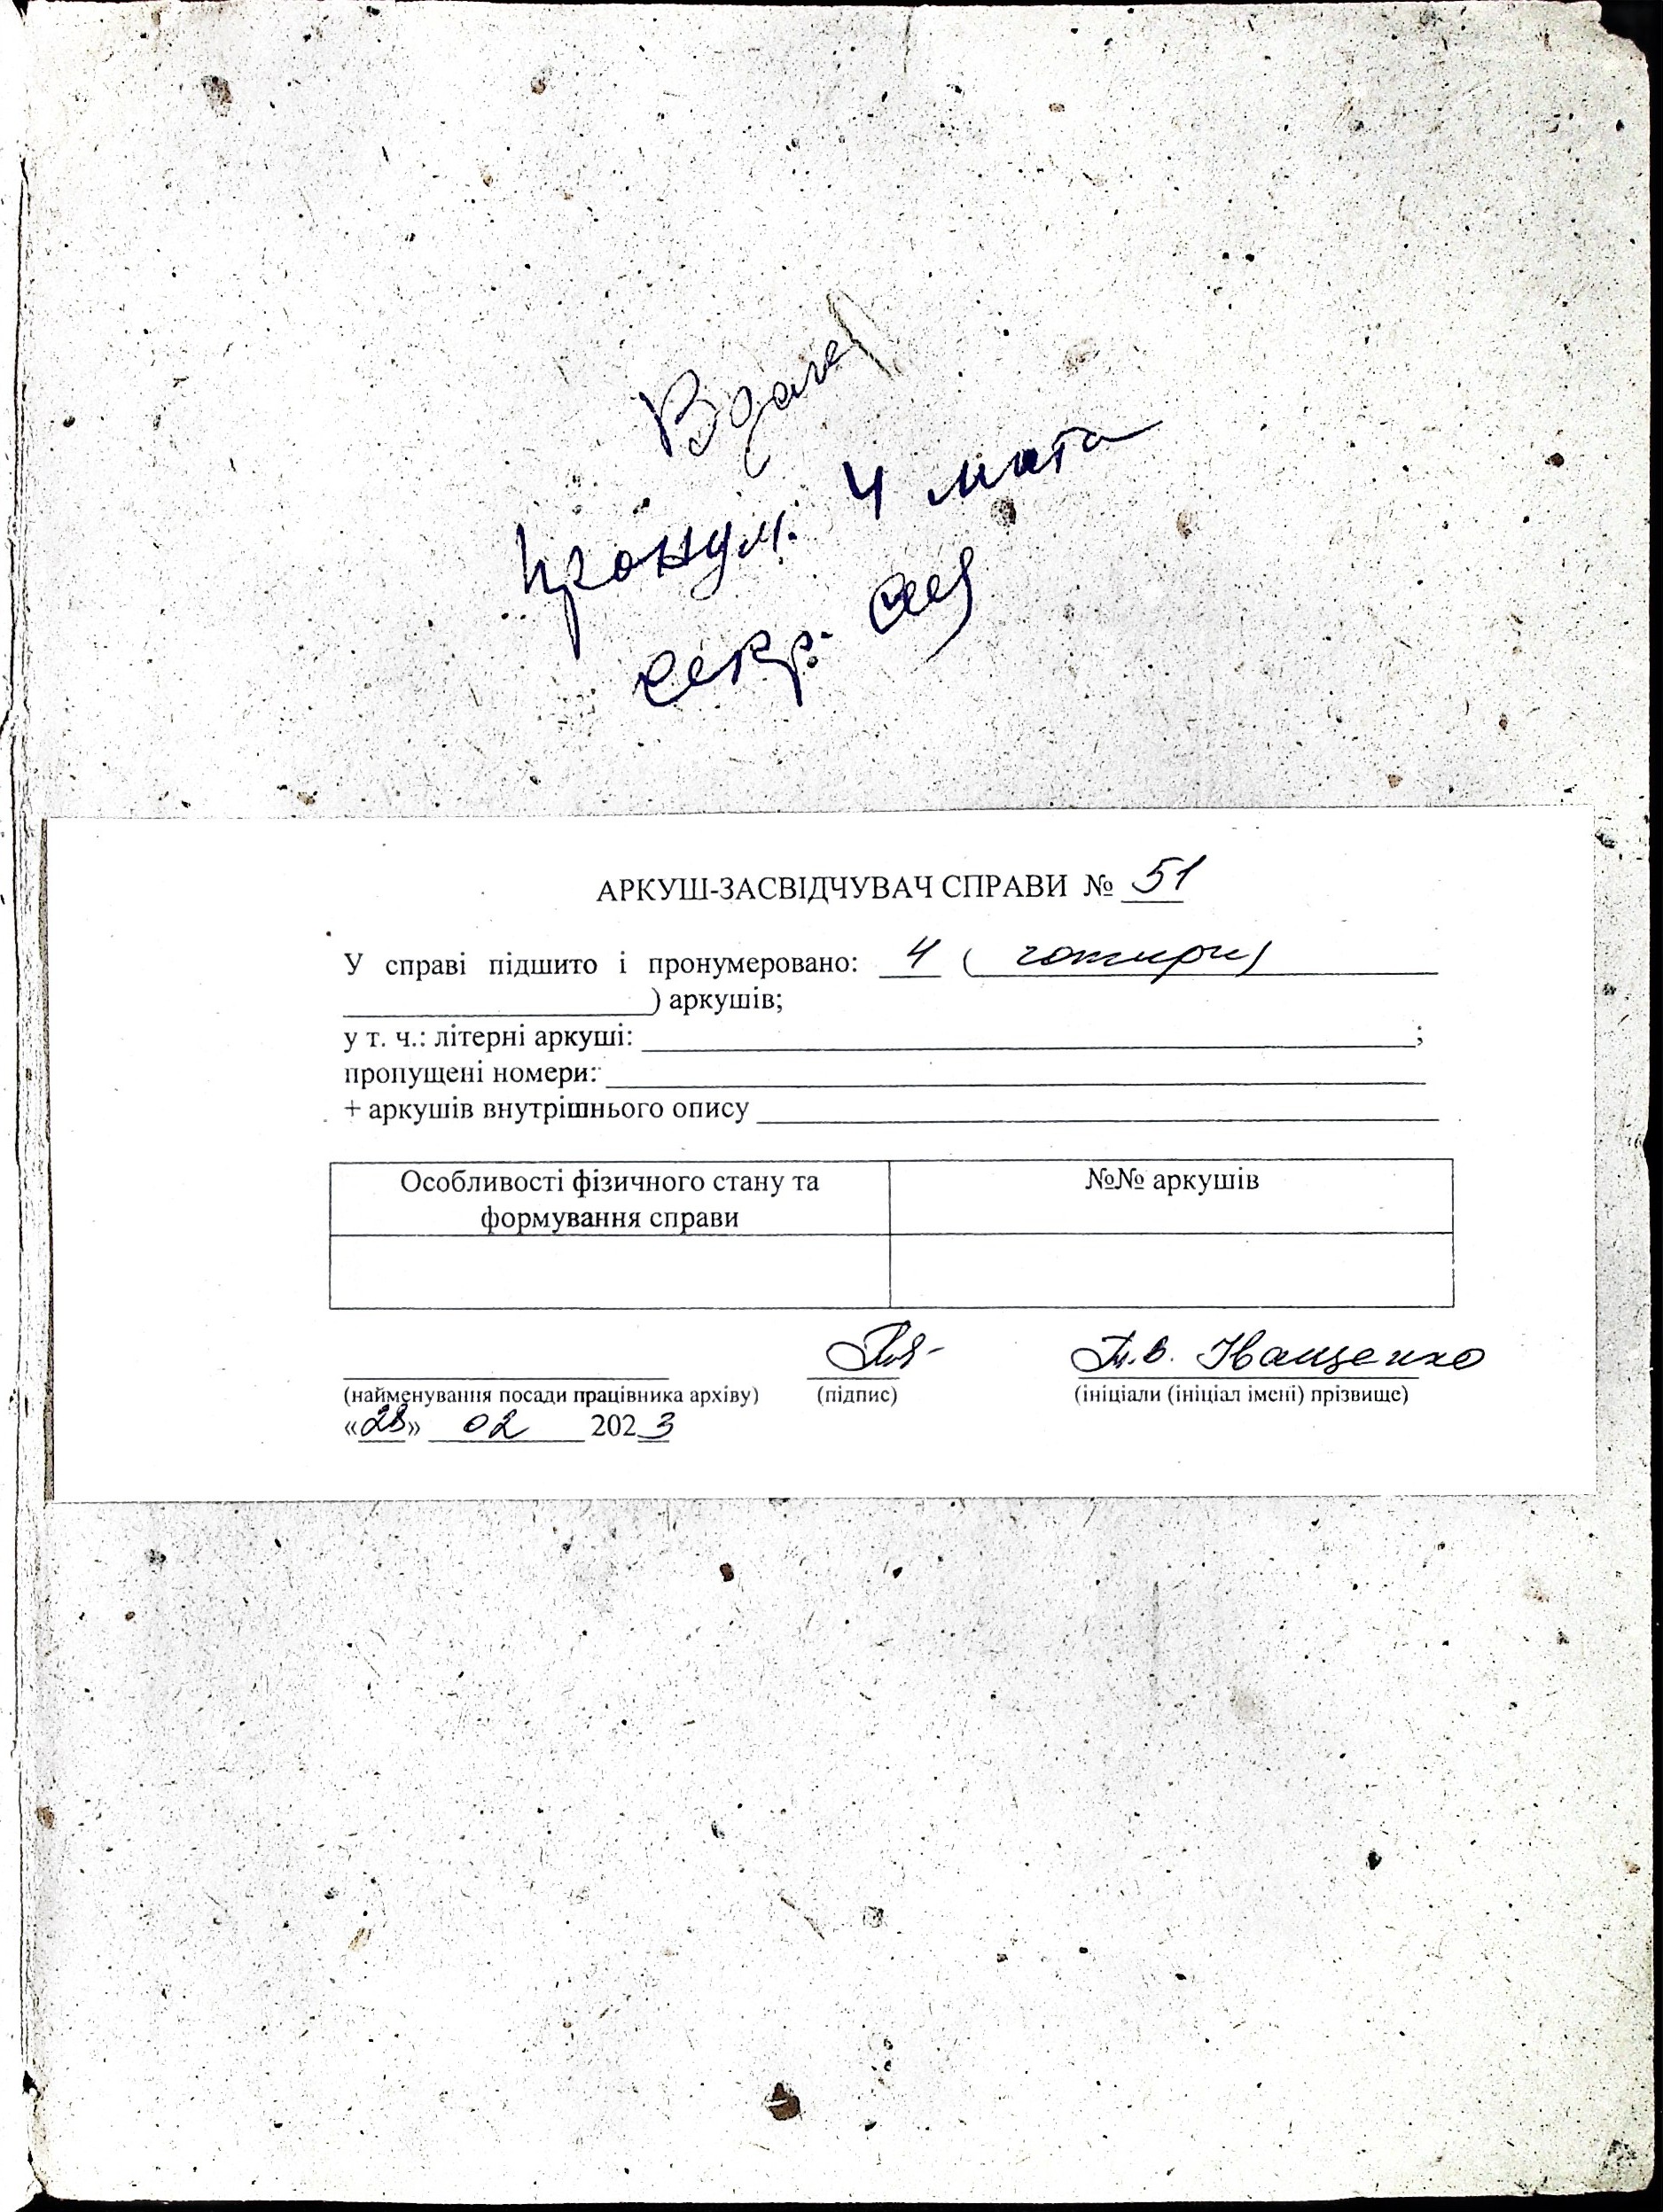 В деле
пронум. 4 листа
секр.
АРКУШ-ЗАСВІДЧУВАЧ СПРАВИ № 51
У справі підшито і пронумеровано: 4 ( чотири)
) аркушів;
у т. ч.: літерні аркуші: ;
пропущені номери:
+ аркушів внутрішнього опису
Особливості фізичного стану та
формування справи
№№ аркушів
Т.В. Іващенко
(найменування посади працівника архіву) (підпис) (ініціали (ініціал імені) прізвище)
«28» 02 2023